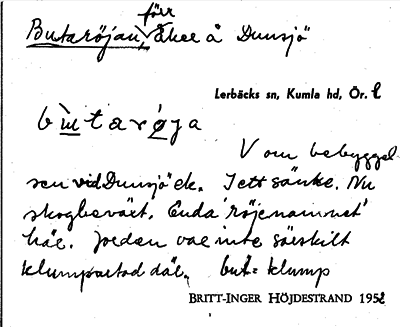 Butaröjan, förr åker å Dunsjö
Lerbäcks sn, Kumla hd, Ör. l
bùtarøja
V om bebyggel-
sen vid Dunsjö ek. I ett sänke. Nu
skogbeväxt. Enda 'röjenamnet'
här. Jorden var inte särskilt
klumpartad där. but = klump
BRITT-INGER HÖJDESTRAND 1952